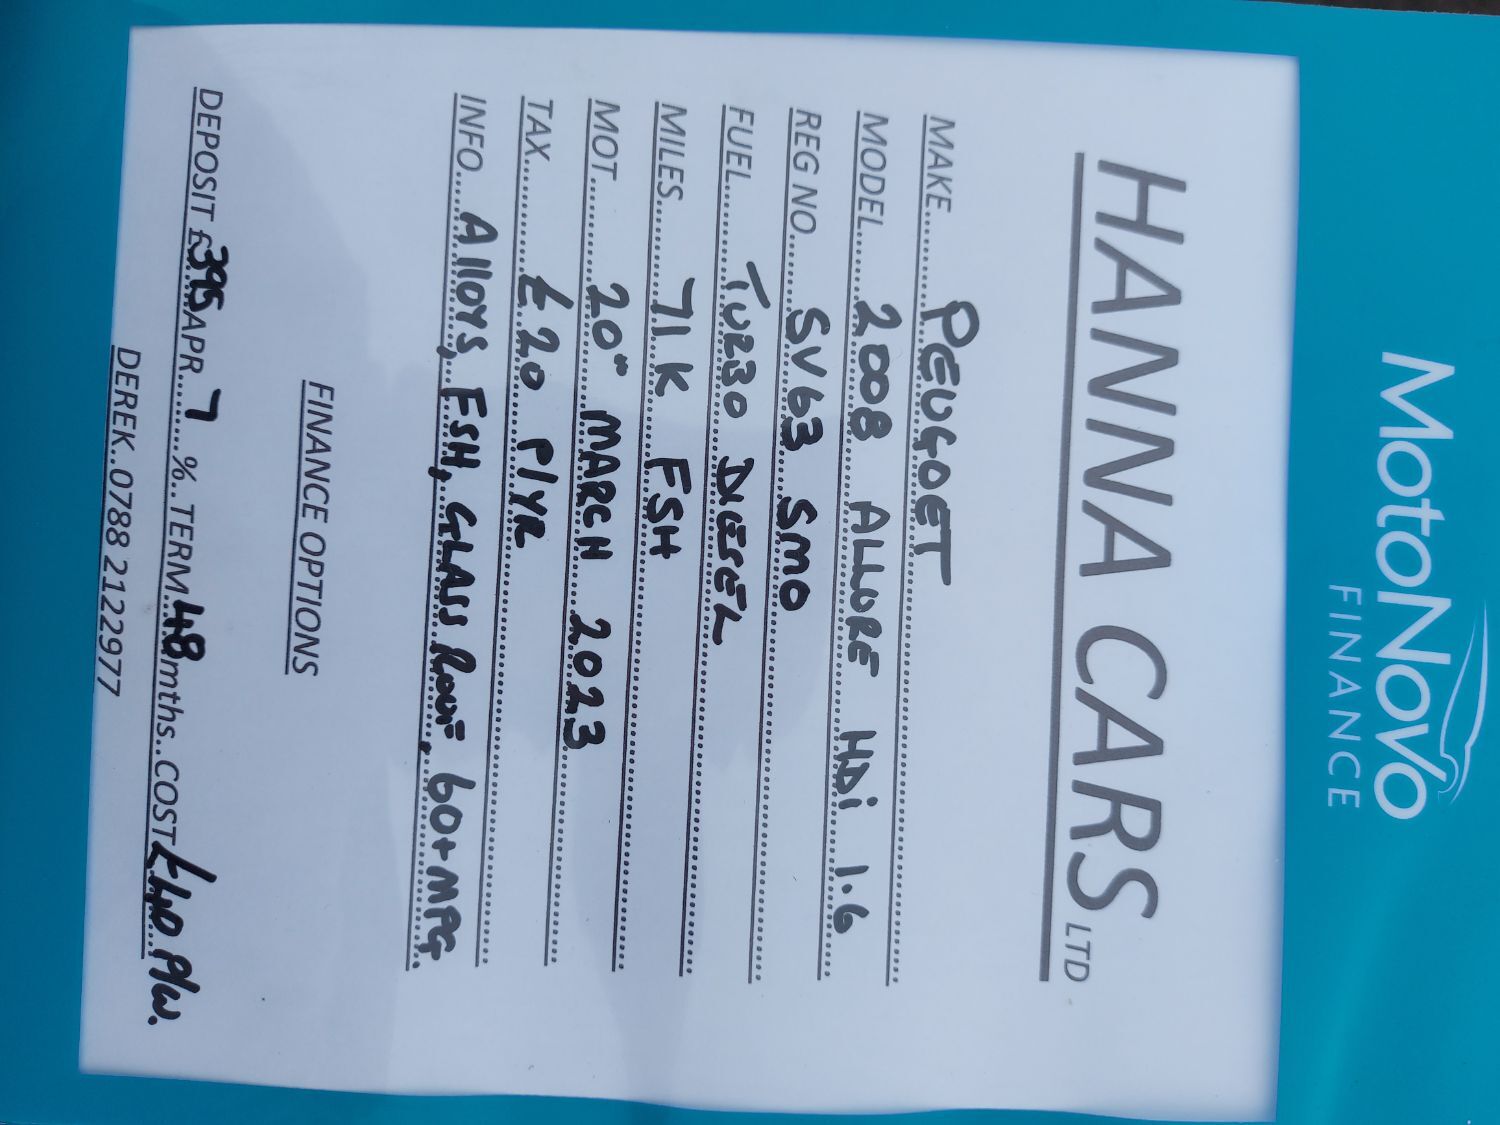 MotoNovo
FINANCE
HANNA CARS LTD
MAKE........PEUGOET
MODEL......2008 ALLURE HDi 1.6
REG NO......SV63 SMO
FUEL........TURBO DIESEL
MILES........71K FSH
MOT.........20TH MARCH 2023
TAX..........£20 P/YR
INFO....Alloys, FSH, GLASS Roof, 60+MPG
FINANCE OPTIONS
DEPOSIT £395 APR...7...%..TERM 48 mths..COST £40 P/W.
DEREK..0788 2122977